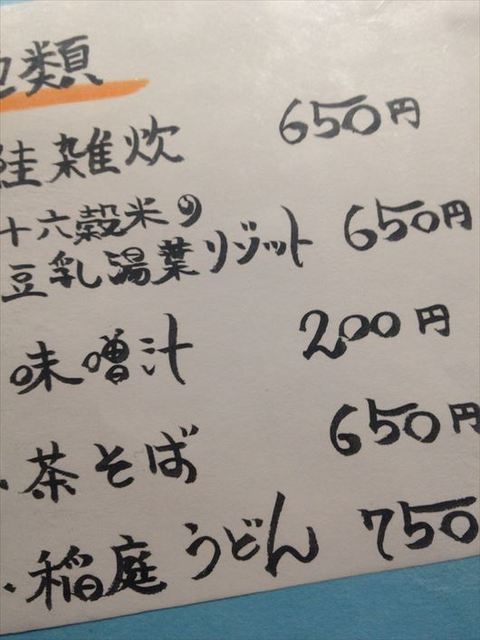 類
鮭雑炊 650円
十六穀米の
豆乳湯葉リゾット 650円
味噌汁 200円
・茶そば 650円
・稲庭うどん 750